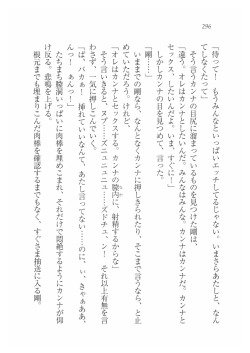 296
「待って！　もうみんなといっぱいエッチしてるじゃない。いまさらあたしと、なん
てしなくたって」
そう言うカンナの目尻に溜まっているものを見つけた剛は、
「違う。オレはカンナとしたいんだ。みんなはみんな。カンナはカンナだ。カンナと
セックス、したいんだよ。いま、すぐに！」
しかしカンナの目を見つめて、言った。
「剛……」
いままでの剛なら、いきなりこんなことされたり、そこまで言うなら、と
めていただろう。けれど、
「オレはカンナとセックスする。カンナの膣内に、射精するからな」
そう言いきると、ヌプ……ズニュニュニュー……ズドチュ、ン！　それ以上有無を言
わさず、一気に押しこんでいく。
「ば、バカぁ！……挿れていいなんて、あたし言ってない……のに、ぃ、きゃぁああ」
たちまち膣洞いっぱいに肉棒を埋めこまれ、それだけで悶絶するようにカンナが仰
け反る。悲鳴を上げる。
根元までも埋まりこんだ肉棒を確認するまでもなく、すぐさま抽送に入る剛。